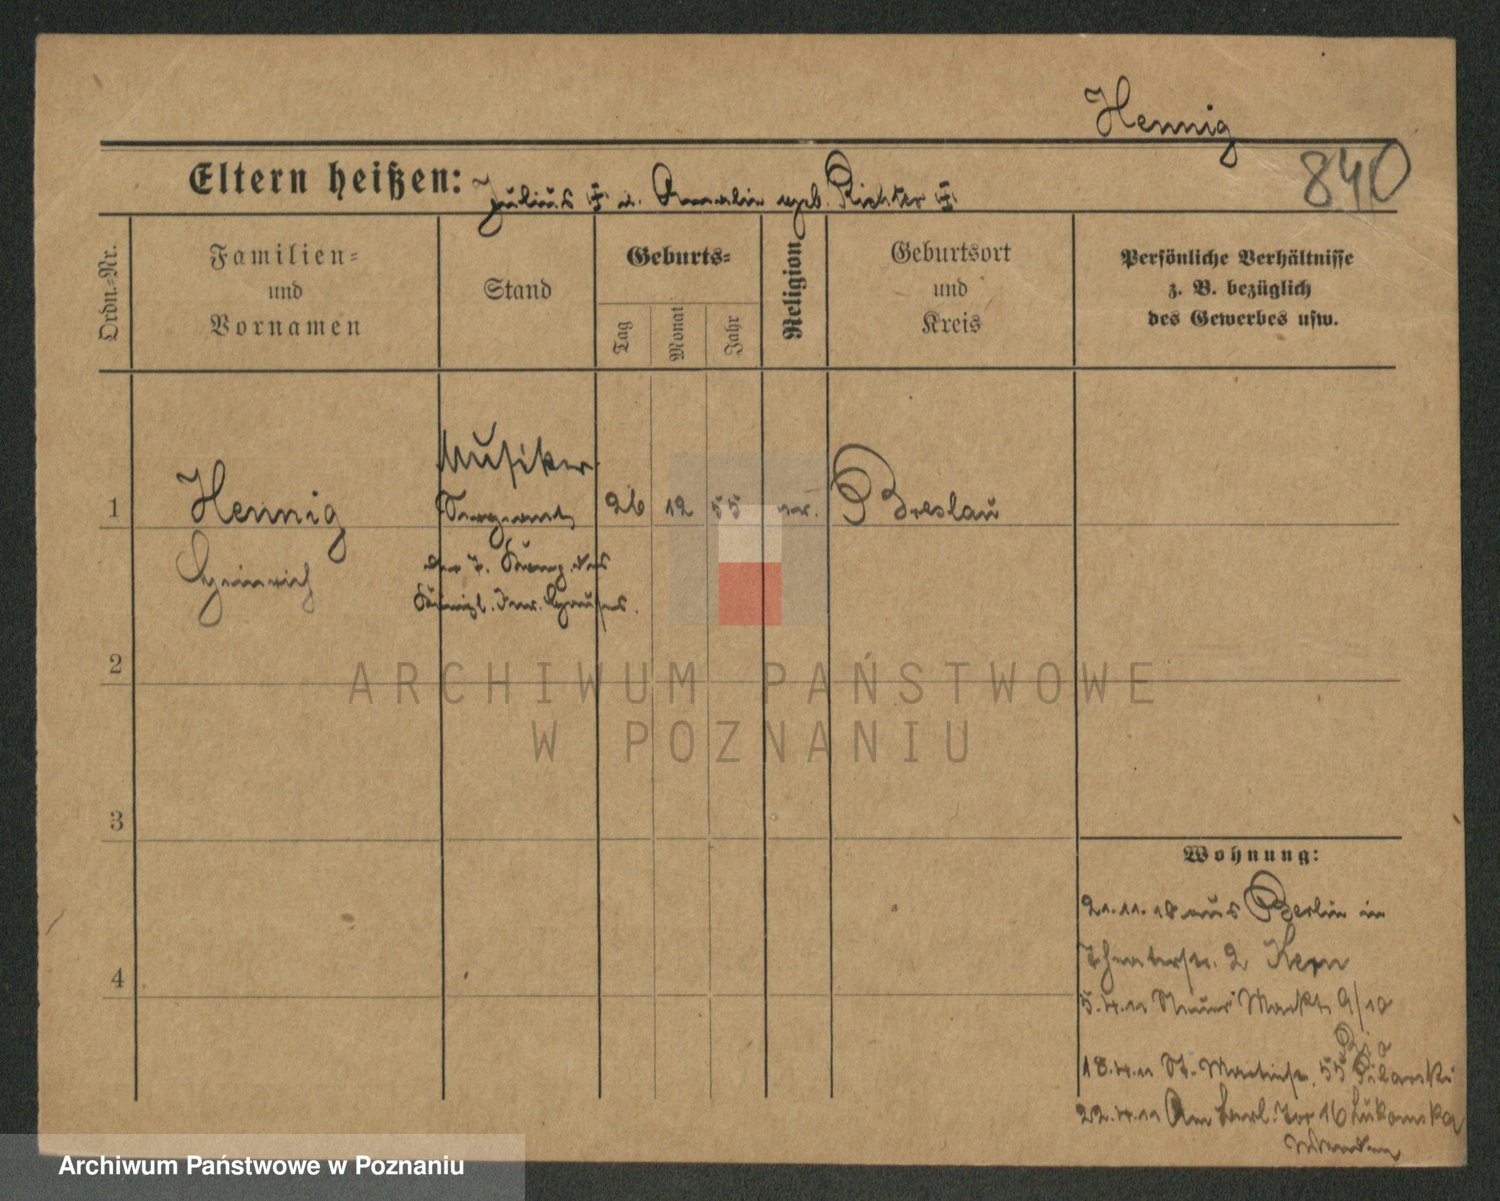 Hennig
840
Eltern heißen: Julius † u. Amalie geb. Richter †
Ordn.-Nr.
Familien-
und
Vornamen
Stand
Geburts-
Tag
Monat
Jahr
Religion
Geburtsort
und
Kreis
Persönliche Verhältnisse
z. B. bezüglich
des Gewerbes usw.
Musiker
1 Hennig 26 12 55 Breslau
Heinrich
2
ARCHIWUM PAŃSTWOWE
W POZNANIU
3
4
Wohnung:
21.11.10 aus Berlin in
Theaterstr. 2
5.4.11 Neuer Markt 9/10
18.4.11 St. Martinstr. 55 Pilarski
22.4.11 Am Berl. Tor 16 Lukomska
Archiwum Państwowe w Poznaniu